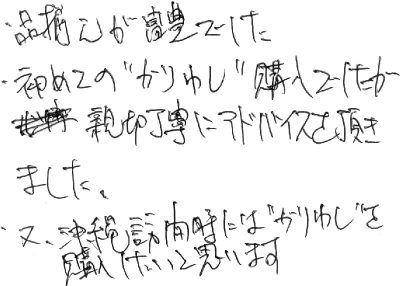 ・品揃えが豊豊でした
・初めての"かりゆし"購入でしたが
親切丁寧にアドバイスを頂き
ました。
・又、沖縄訪問時には"かりゆし"を
購入したいと思います